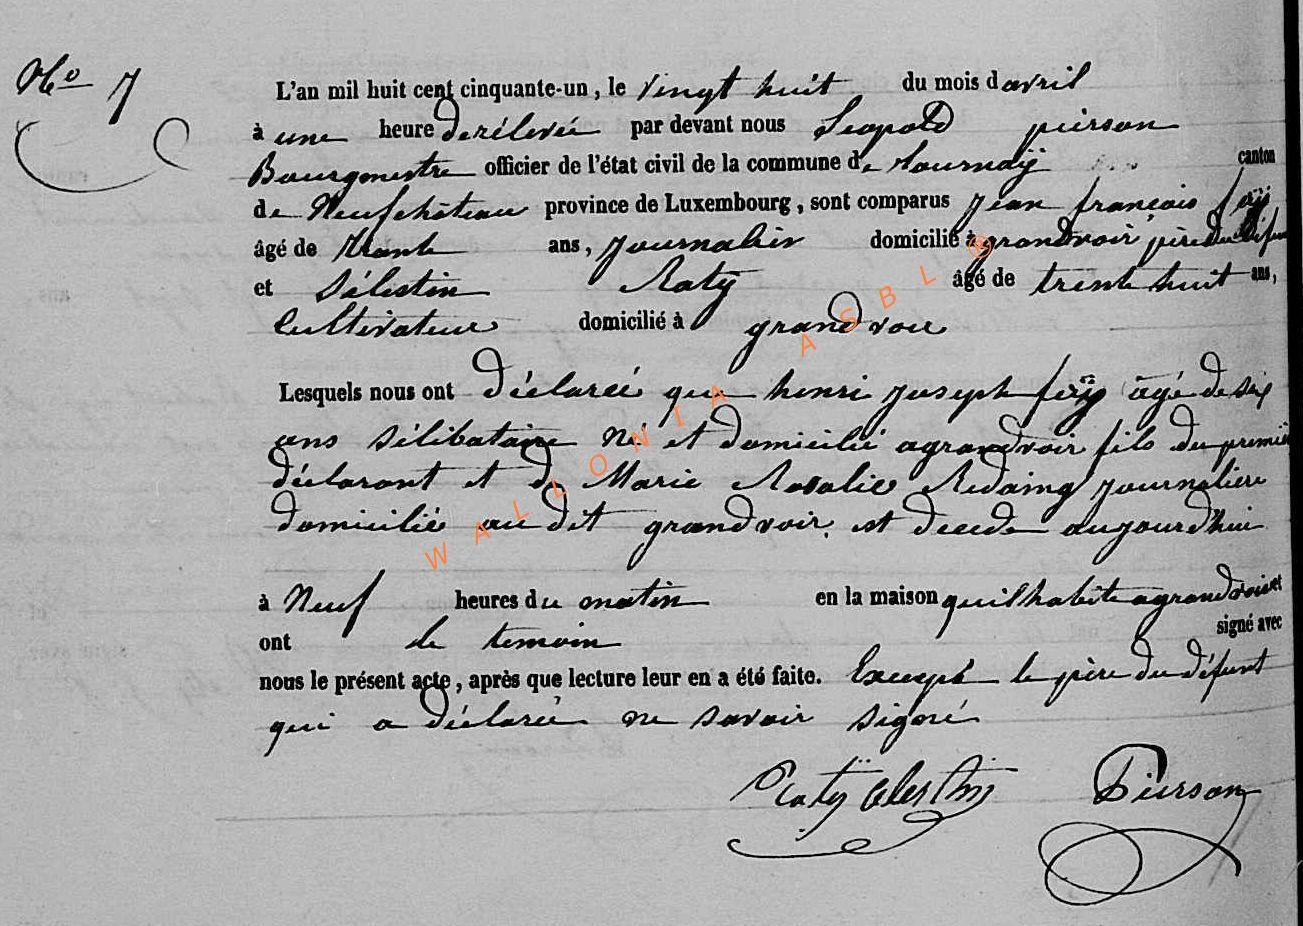 No 7
L'an mil huit cent cinquante-un, le vingt huit du mois d avril
à une heure de rélevée par devant nous Leopold pierson
Bourgmestre officier de l'état civil de la commune de tournaÿ canton
de Neufchâteau province de Luxembourg, sont comparus jean françois feÿ
âgé de trente ans, journalier domicilié à grandvoir père du défunt
et Sélestin Ratÿ âgé de trente huit ans,
Cultivateur domicilié à grandvoir
Lesquels nous ont déclarée que henri joseph feÿ âgé de six
ans sélibataire né et domicilié a grandvoir fils du premier
déclarant et de Marie Rosalie Redaing journalière
domicilié au dit grandvoir, est decede aujourd'hui
à Neuf heures du matin en la maison quil habite a grandvoir et
ont le temoin signé avec
nous le présent acte, après que lecture leur en a été faite. Excepté le père du défunt
qui a déclarée ne savoir signé
Ratÿ Celestin Pierson
WALLONIA ASBL ®